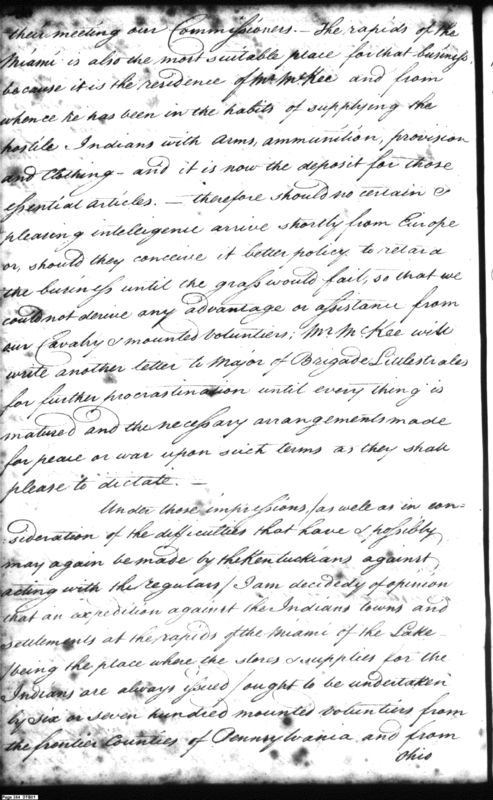 their meeting our Commissioners. — The rapids of the
Miami is also the most suitable place for that business,
because it is the residence of Mr McKee and from
whence he has been in the habits of supplying the
hostile Indians with arms, ammunition, provision
and Clothing — and it is now the deposit for those
essential articles. — therefore should no certain &
pleasing intelegence arrive shortly from Europe
or, should they conceive it better policy to retard
the business until the grass would fail, so that we
could not derive any advantage or assistance from
our Cavalry & mounted volunteers; Mr McKee will
write another letter to Major of Brigade Littlestrales
for further procrastination until every thing is
matured and the necessary arrangements made
for peace or war upon such terms as they shall
please to dictate. —
Under those impressions, /as well as in con=
sideration of the difficulties that have & possibly
may again be made by the Kentuckians against
acting with the regulars/ I am decidedly of opinion
that an expedition against the Indians towns and
settlements at the rapids of the Miami of the Lake
/being the place where the stores & supplies for the
Indians are always issued/ ought to be undertaken
by six or seven hundred mounted volunteers from
the frontier Counties of Pennsylvania and from
Ohio